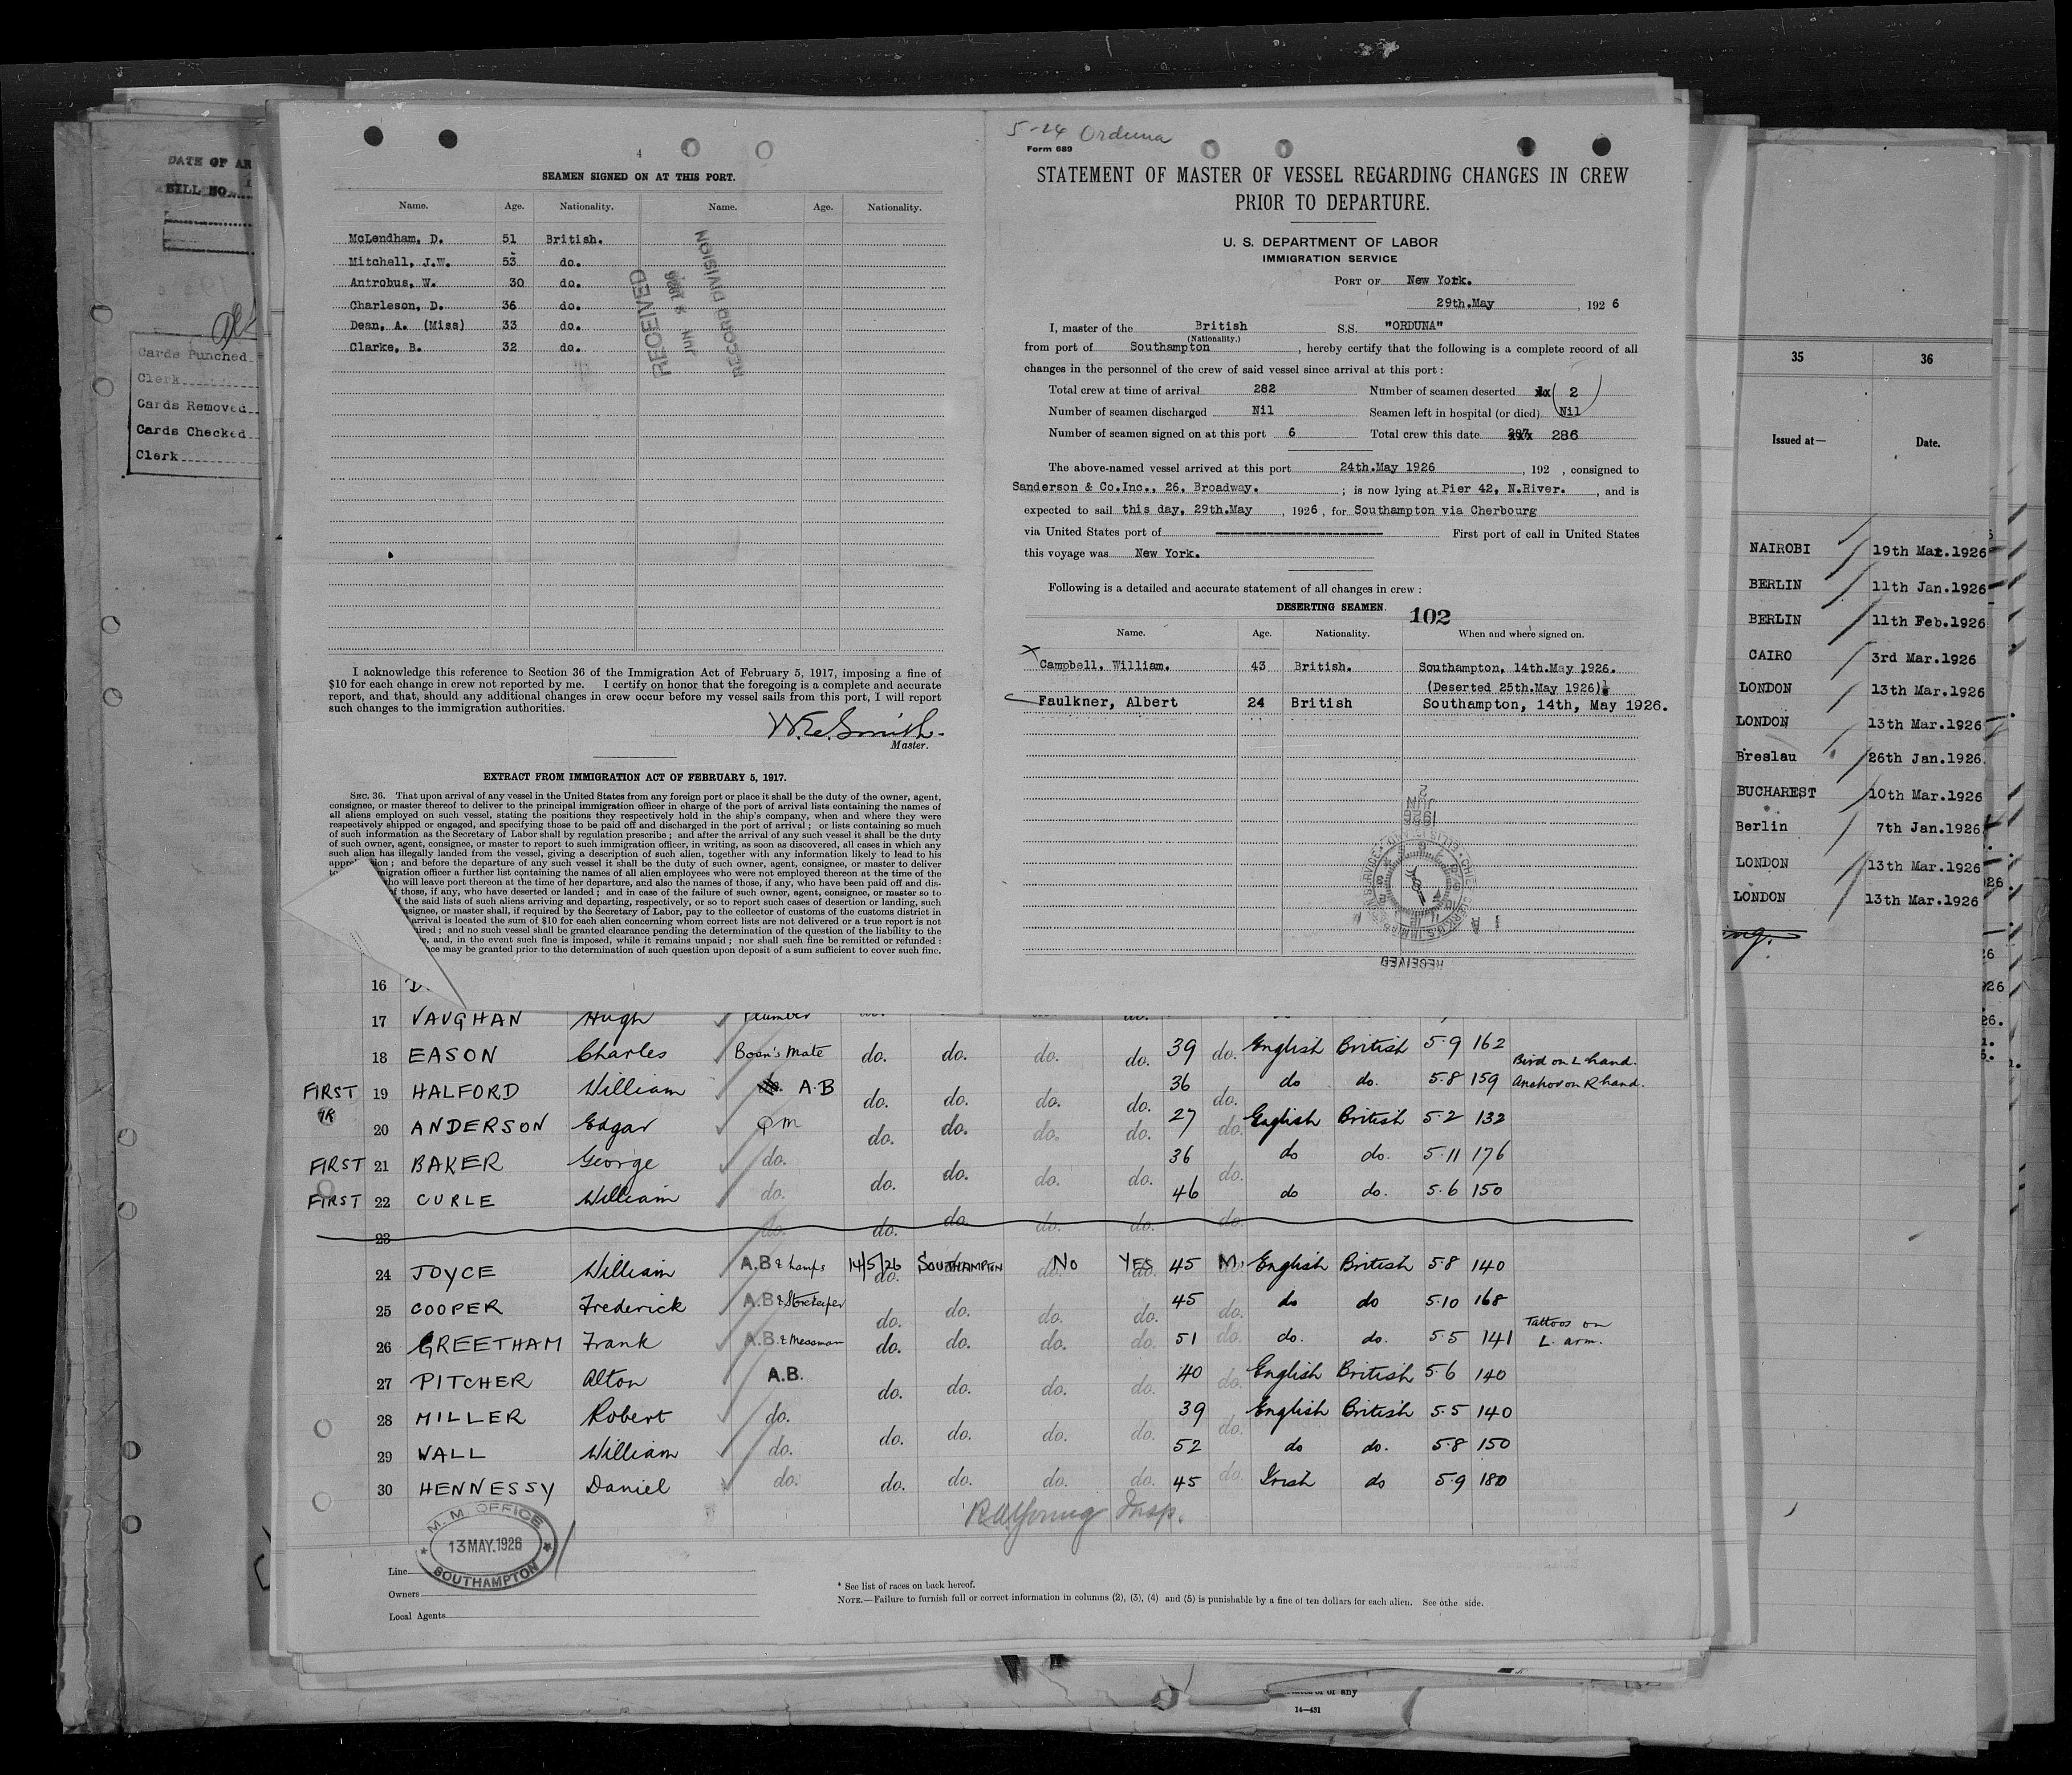 DATE OF AR
BILL NO.
Cards Punched
Clerk
Cards Removed
Cards Checked
Clerk
4
SEAMEN SIGNED ON AT THIS PORT.
Name. Age. Nationality. Name. Age. Nationality.
McLendham, D. 51 British.
Mitchell, J.W. 53 do.
Antrobus, W. 30 do.
Charleson, D. 36 do.
Dean, A. (Miss) 33 do.
Clarke, B. 32 do.
RECEIVED
JUN 4 1926
RECORD DIVISION
I acknowledge this reference to Section 36 of the Immigration Act of February 5, 1917, imposing a fine of
$10 for each change in crew not reported by me. I certify on honor that the foregoing is a complete and accurate
report, and that, should any additional changes in crew occur before my vessel sails from this port, I will report
such changes to the immigration authorities.
W.E. Smith.
Master.
EXTRACT FROM IMMIGRATION ACT OF FEBRUARY 5, 1917.
SEC. 36. That upon arrival of any vessel in the United States from any foreign port or place it shall be the duty of the owner, agent,
consignee, or master thereof to deliver to the principal immigration officer in charge of the port of arrival lists containing the names of
all aliens employed on such vessel, stating the positions they respectively hold in the ship's company, when and where they were
respectively shipped or engaged, and specifying those to be paid off and discharged in the port of arrival; or lists containing so much
of such information as the Secretary of Labor shall by regulation prescribe; and after the arrival of any such vessel it shall be the duty
of such owner, agent, consignee, or master to report to such immigration officer, in writing, as soon as discovered, all cases in which any
such alien has illegally landed from the vessel, giving a description of such alien, together with any information likely to lead to his
appre ion; and before the departure of any such vessel it shall be the duty of such owner, agent, consignee, or master to deliver
to migration officer a further list containing the names of all alien employees who were not employed thereon at the time of the
ho will leave port thereon at the time of her departure, and also the names of those, if any, who have been paid off and dis-
of those, if any, who have deserted or landed; and in case of the failure of such owner, agent, consignee, or master so to
f the said lists of such aliens arriving and departing, respectively, or so to report such cases of desertion or landing, such
nsignee, or master shall, if required by the Secretary of Labor, pay to the collector of customs of the customs district in
arrival is located the sum of $10 for each alien concerning whom correct lists are not delivered or a true report is not
ired; and no such vessel shall be granted clearance pending the determination of the question of the liability to the
e, and, in the event such fine is imposed, while it remains unpaid; nor shall such fine be remitted or refunded:
ce may be granted prior to the determination of such question upon deposit of a sum sufficient to cover such fine.
5-24 Orduna
Form 689
STATEMENT OF MASTER OF VESSEL REGARDING CHANGES IN CREW
PRIOR TO DEPARTURE.
U. S. DEPARTMENT OF LABOR
IMMIGRATION SERVICE
PORT OF New York.
29th.May , 192 6
I, master of the British S.S. "ORDUNA"
(Nationality.)
from port of Southampton , hereby certify that the following is a complete record of all
changes in the personnel of the crew of said vessel since arrival at this port:
Total crew at time of arrival 282 Number of seamen deserted 2
Number of seamen discharged Nil Seamen left in hospital (or died) Nil
Number of seamen signed on at this port 6 Total crew this date 287 286
The above-named vessel arrived at this port 24th.May 1926 , 192 , consigned to
Sanderson & Co.Inc., 26, Broadway. ; is now lying at Pier 42, N.River. , and is
expected to sail this day, 29th.May , 1926, for Southampton via Cherbourg
via United States port of First port of call in United States
this voyage was New York.
Following is a detailed and accurate statement of all changes in crew:
DESERTING SEAMEN. 102
Name. Age. Nationality. When and where signed on.
Campbell, William. 43 British. Southampton, 14th.May 1926.
(Deserted 25th.May 1926)
Faulkner, Albert 24 British Southampton, 14th, May 1926.
2
JUN
1926
RECEIVED
35 36
Issued at— Date.
NAIROBI 19th Mar.1926
BERLIN 11th Jan.1926
BERLIN 11th Feb.1926
CAIRO 3rd Mar.1926
LONDON 13th Mar.1926
LONDON 13th Mar.1926
Breslau 26th Jan.1926
BUCHAREST 10th Mar.1926
Berlin 7th Jan.1926
LONDON 13th Mar.1926
LONDON 13th Mar.1926
16
17 VAUGHAN Hugh Plumber
18 EASON Charles Bosn's Mate do. do. do. do. 39 do. English British 5.9 162
Bird on L hand.
FIRST 19 HALFORD William A.B do. do. do. do. 36 do. do do. 5.8 159 Anchor on R hand.
20 ANDERSON Edgar QM do. do. do. do. 27 do. English British 5.2 132
FIRST 21 BAKER George do. do. do. do. do. 36 do. do do. 5.11 176
FIRST 22 CURLE William do. do. do. do. do. 46 do. do do. 5.6 150
23
24 JOYCE William A.B & Lamps 14/5/26 SOUTHAMPTON No YES 45 M. English British 5.8 140
25 COOPER Frederick A.B & Storekeeper do. do. do. do. 45 do. do do 5.10 168
26 GREETHAM Frank A.B. & Messman do. do. do. do. 51 do. do. do. 5.5 141 Tattoos on
L. arm.
27 PITCHER Alton A.B. do. do. do. do. 40 do. English British 5.6 140
28 MILLER Robert do. do. do. do. do. 39 do. English British 5.5 140
29 WALL William do. do. do. do. do. 52 do do. 5.8 150
30 HENNESSY Daniel do. do. do. do. do. 45 do. Irish do 5.9 180
Insp.
M. M. OFFICE
13 MAY.1926
SOUTHAMPTON
Line
Owners
Local Agents
* See list of races on back hereof.
NOTE.—Failure to furnish full or correct information in columns (2), (3), (4) and (5) is punishable by a fine of ten dollars for each alien. See othe side.
of any
14—431